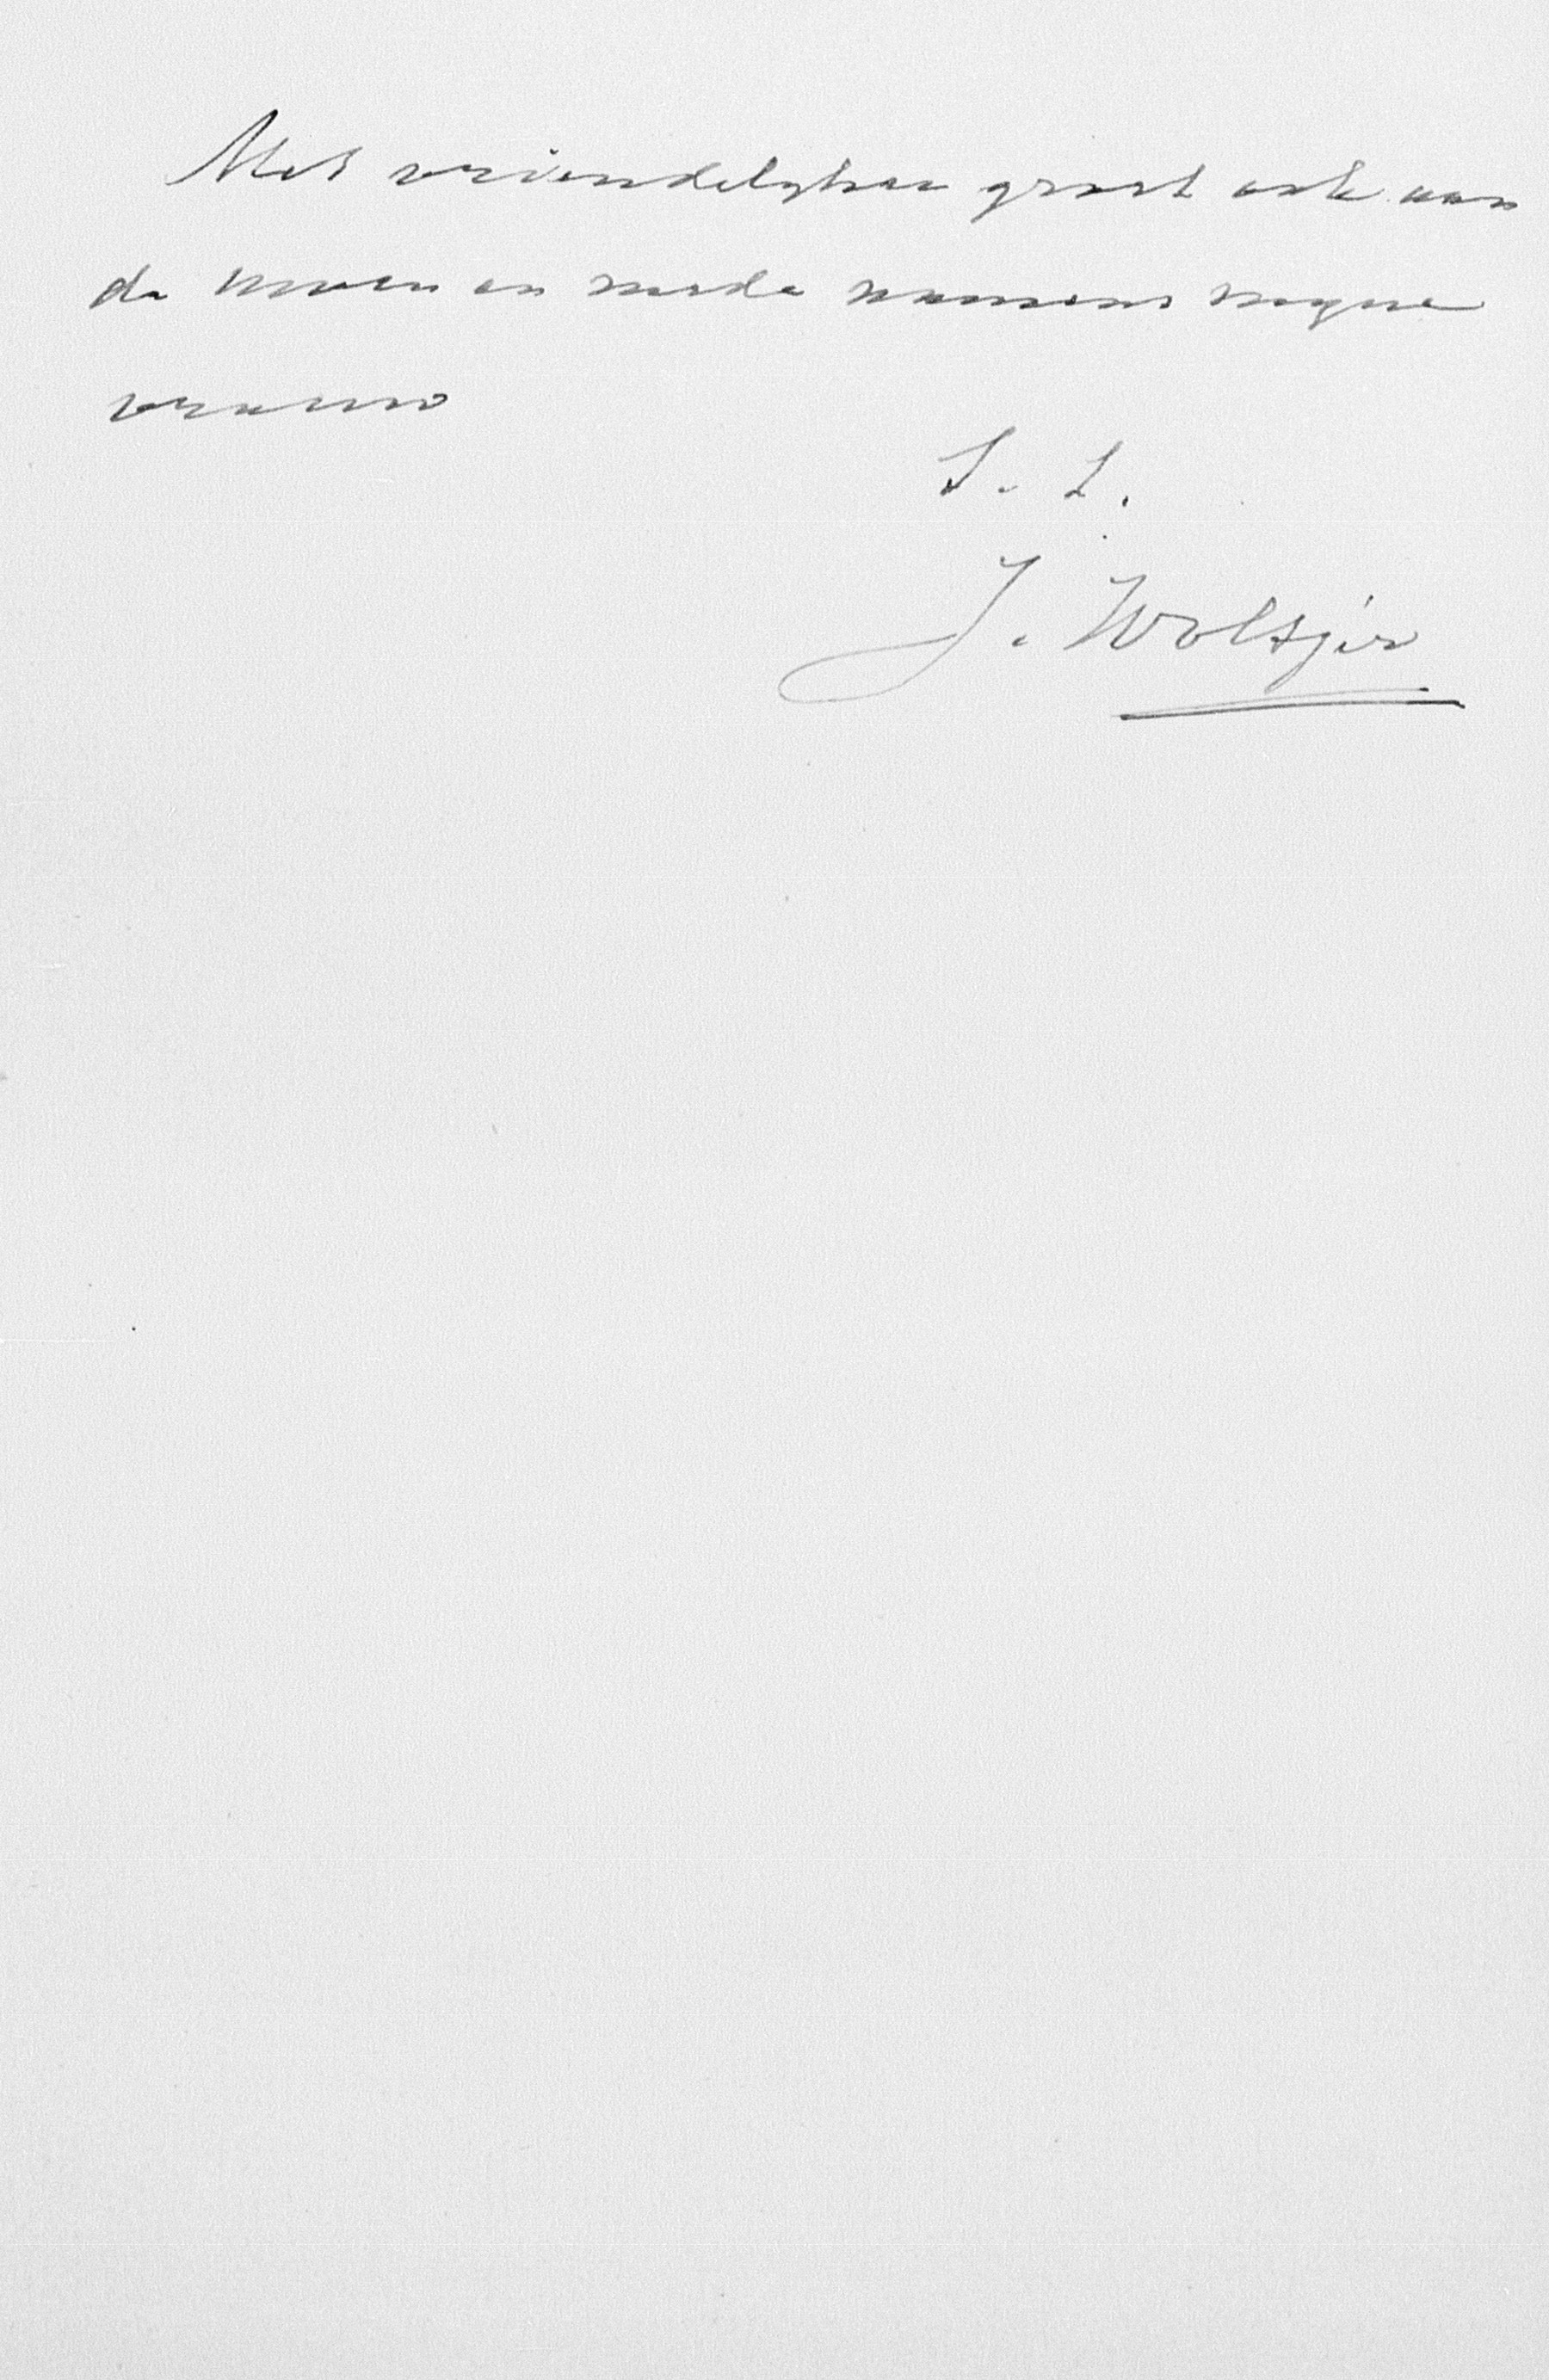 Met vriendelyken groet ook aan
de Uwen en mede namens myne
vrouw
t. t.
J. Woltjer